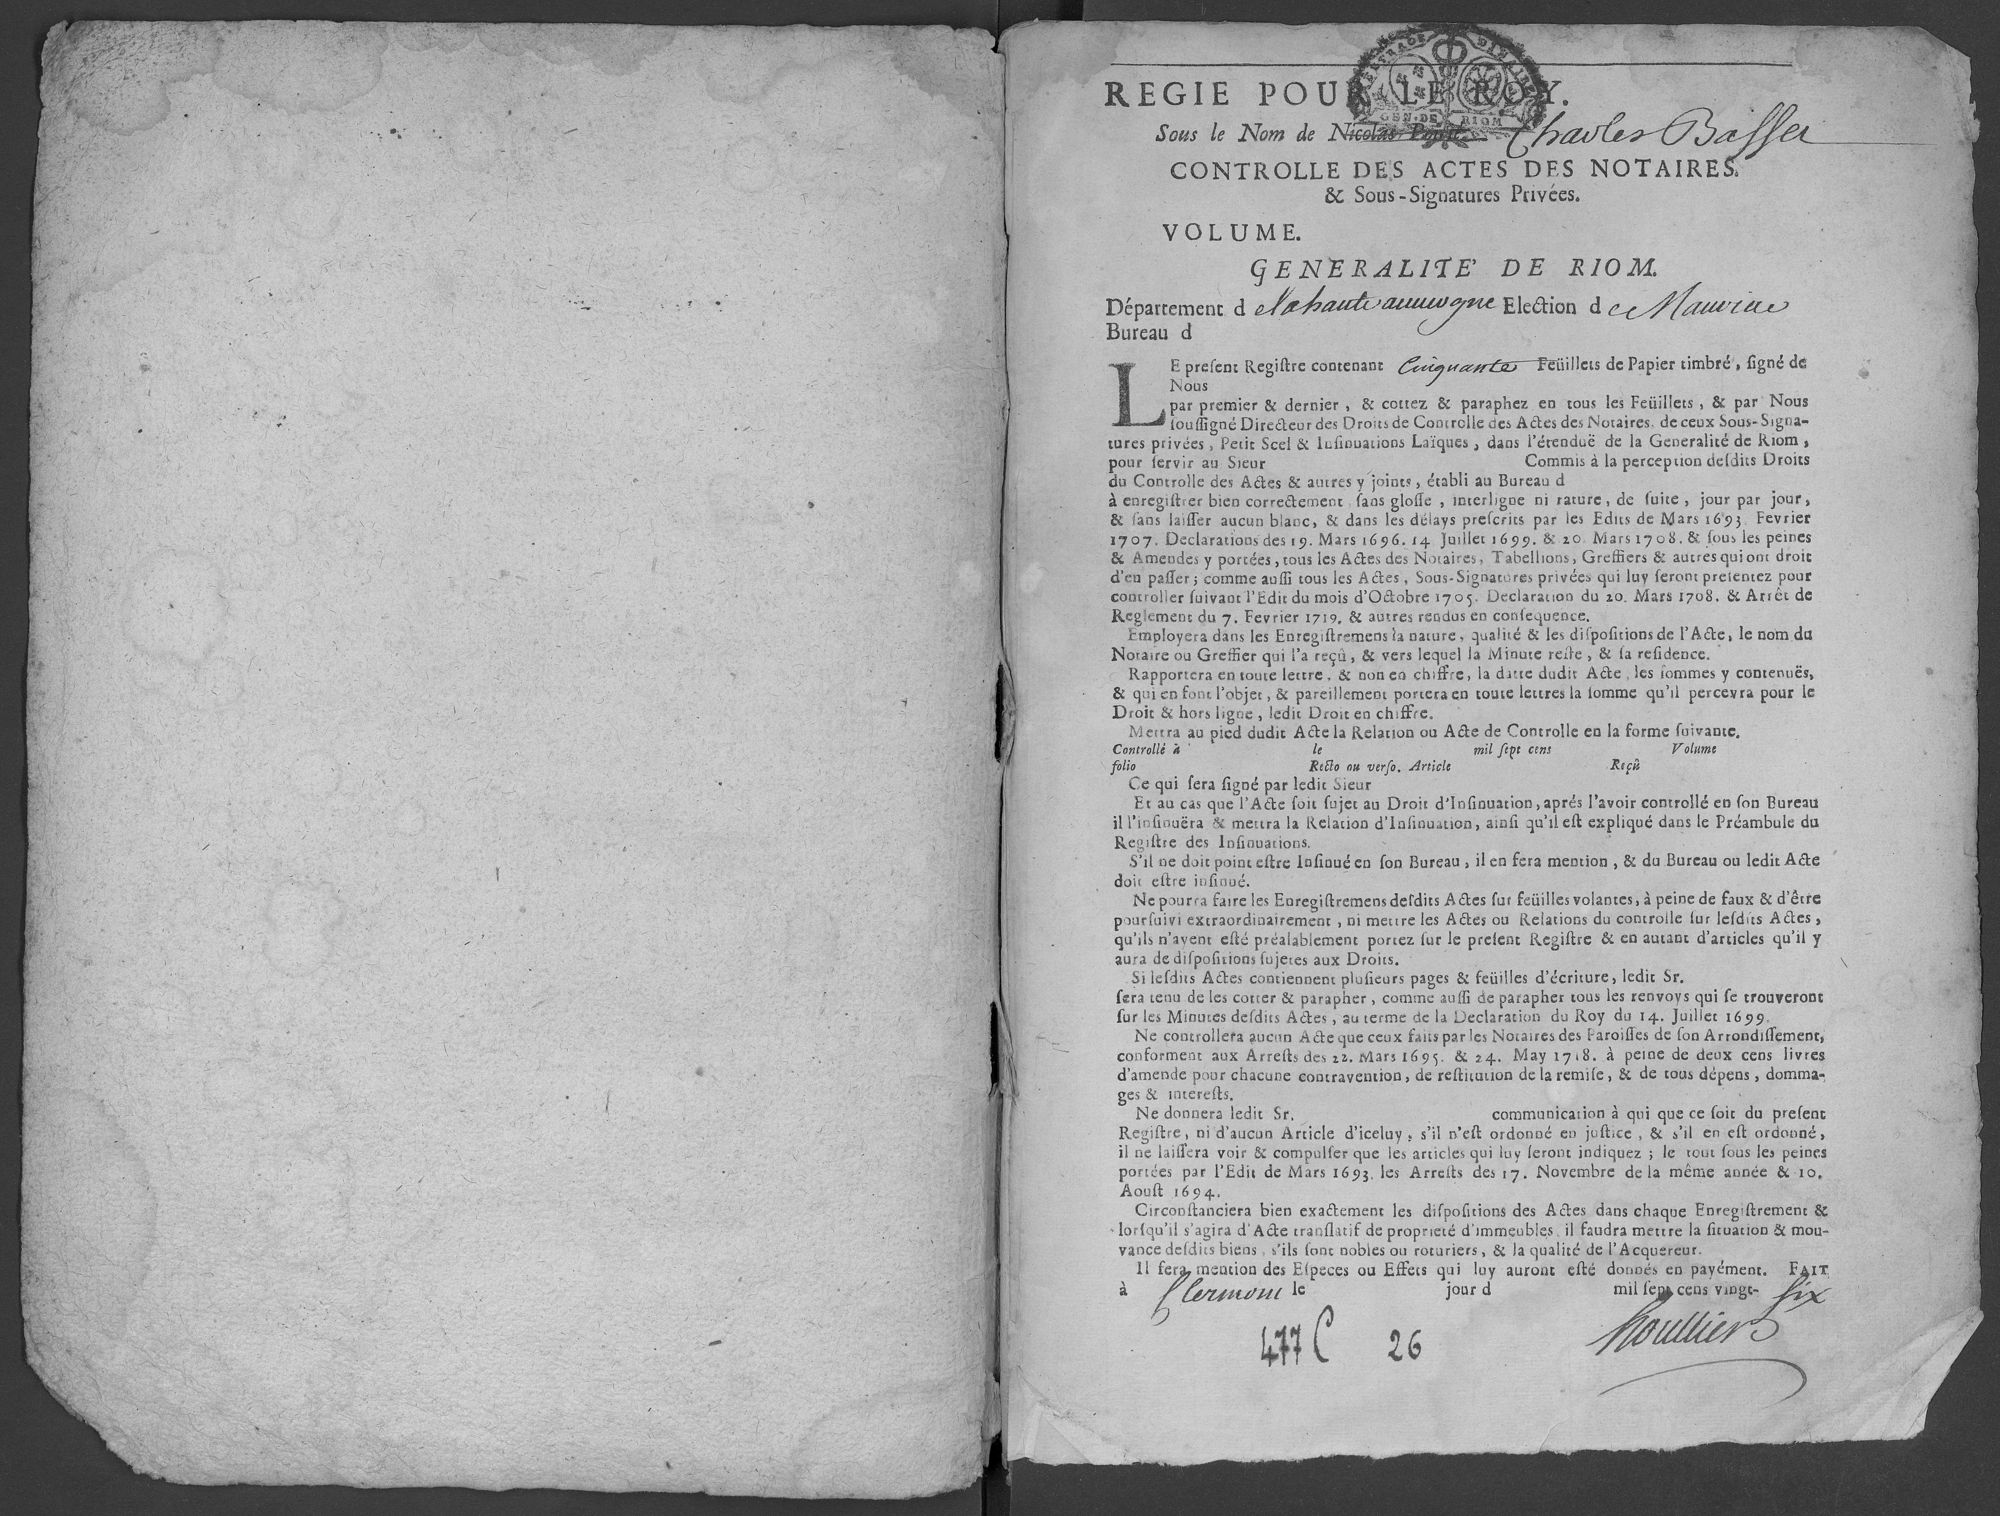 REGIE POUR LE ROY.
Sous le Nom de Nicolas Charles Basset
CONTROLLE DES ACTES DES NOTAIRES.
& Sous-Signatures Privées.
VOLUME.
GENERALITE' DE RIOM.
Département d ela haute auvergne Election d e Mauriac
Bureau d
LE preſent Regiſtre contenant Cinquante Feüillets de Papier timbré, ſigné de
Nous
par premier & dernier, & cottez & paraphez en tous les Feüillets, & par Nous
ſouſſigné Directeur des Droits de Controlle des Actes des Notaires, de ceux Sous-Signa-
tures privées, Petit Scel & Inſinuations Laïques, dans l'étenduë de la Generalité de Riom,
pour ſervir au Sieur Commis à la perception deſdits Droits
du Controlle des Actes & autres y joints, établi au Bureau d
à enregiſtrer bien correctement, ſans gloſſe, interligne ni rature, de ſuite, jour par jour,
& ſans laiſſer aucun blanc, & dans les délays preſcrits par les Edits de Mars 1693. Fevrier
1707. Declarations des 19. Mars 1696. 14 Juillet 1699. & 20. Mars 1708. & ſous les peines
& Amendes y portées, tous les Actes des Notaires, Tabellions, Greffiers & autres qui ont droit
d'en paſſer; comme auſſi tous les Actes, Sous-Signatures privées qui luy ſeront preſentez pour
controller ſuivant l'Edit du mois d'Octobre 1705. Declaration du 20. Mars 1708. & Arrêt de
Reglement du 7. Fevrier 1719. & autres rendus en conſequence.
Employera dans les Enregiſtremens la nature, qualité & les diſpoſitions de l'Acte, le nom du
Notaire ou Greffier qui l'a reçû, & vers lequel la Minute reſte, & ſa reſidence.
Rapportera en toute lettre, & non en chiffre, la datte dudit Acte, les ſommes y contenuës,
& qui en font l'objet, & pareillement portera en toute lettres la ſomme qu'il percevra pour le
Droit & hors ligne, ledit Droit en chiffre.
Mettra au pied dudit Acte la Relation ou Acte de Controlle en la forme ſuivante.
Controllé à le mil ſept cens Volume
folio Recto ou verſo. Article Reçû
Ce qui ſera ſigné par ledit Sieur
Et au cas que l'Acte ſoit ſujet au Droit d'Inſinuation, aprés l'avoir controllé en ſon Bureau
il l'inſinuëra & mettra la Relation d'Inſinuation, ainſi qu'il eſt expliqué dans le Préambule du
Regiſtre des Inſinuations.
S'il ne doit point eſtre Inſinué en ſon Bureau, il en fera mention, & du Bureau ou ledit Acte
doit eſtre inſinué.
Ne pourra faire les Enregiſtremens deſdits Actes ſur feüilles volantes, à peine de faux & d'être
pourſuivi extraordinairement, ni mettre les Actes ou Relations du controlle ſur leſdits Actes,
qu'ils n'ayent eſté préalablement portez ſur le preſent Regiſtre & en autant d'articles qu'il y
aura de diſpoſitions ſujetes aux Droits.
Si leſdits Actes contiennent pluſieurs pages & feüilles d'écriture, ledit Sr.
ſera tenu de les cotter & parapher, comme auſſi de parapher tous les renvoys qui ſe trouveront
ſur les Minutes deſdits Actes, au terme de la Declaration du Roy du 14. Juillet 1699.
Ne controllera aucun Acte que ceux faits par les Notaires des Paroiſſes de ſon Arrondiſſement,
conforment aux Arreſts des 22. Mars 1695. & 24. May 1718. à peine de deux cens livres
d'amende pour chacune contravention, de reſtitution de la remiſe, & de tous dépens, domma-
ges & intereſts.
Ne donnera ledit Sr. communication à qui que ce ſoit du preſent
Regiſtre, ni d'aucun Article d'iceluy, s'il n'eſt ordonné en juſtice, & s'il en eſt ordonné,
il ne laiſſera voir & compulſer que les articles qui luy ſeront indiquez; le tout ſous les peines
portées par l'Edit de Mars 1693. les Arreſts des 17. Novembre de la même année & 10.
Aouſt 1694.
Circonſtanciera bien exactement les diſpoſitions des Actes dans chaque Enregiſtrement &
lorſqu'il s'agira d'Acte tranſlatif de proprieté d'immeubles, il faudra mettre la ſituation & mou-
vance deſdits biens, s'ils ſont nobles ou roturiers, & la qualité de l'Acquereur.
Il fera mention des Eſpeces ou Effets qui luy auront eſté donnés en payément. FAIT
à Clermont le jour d mil ſept cens vingt- six
houllier
477 C 26